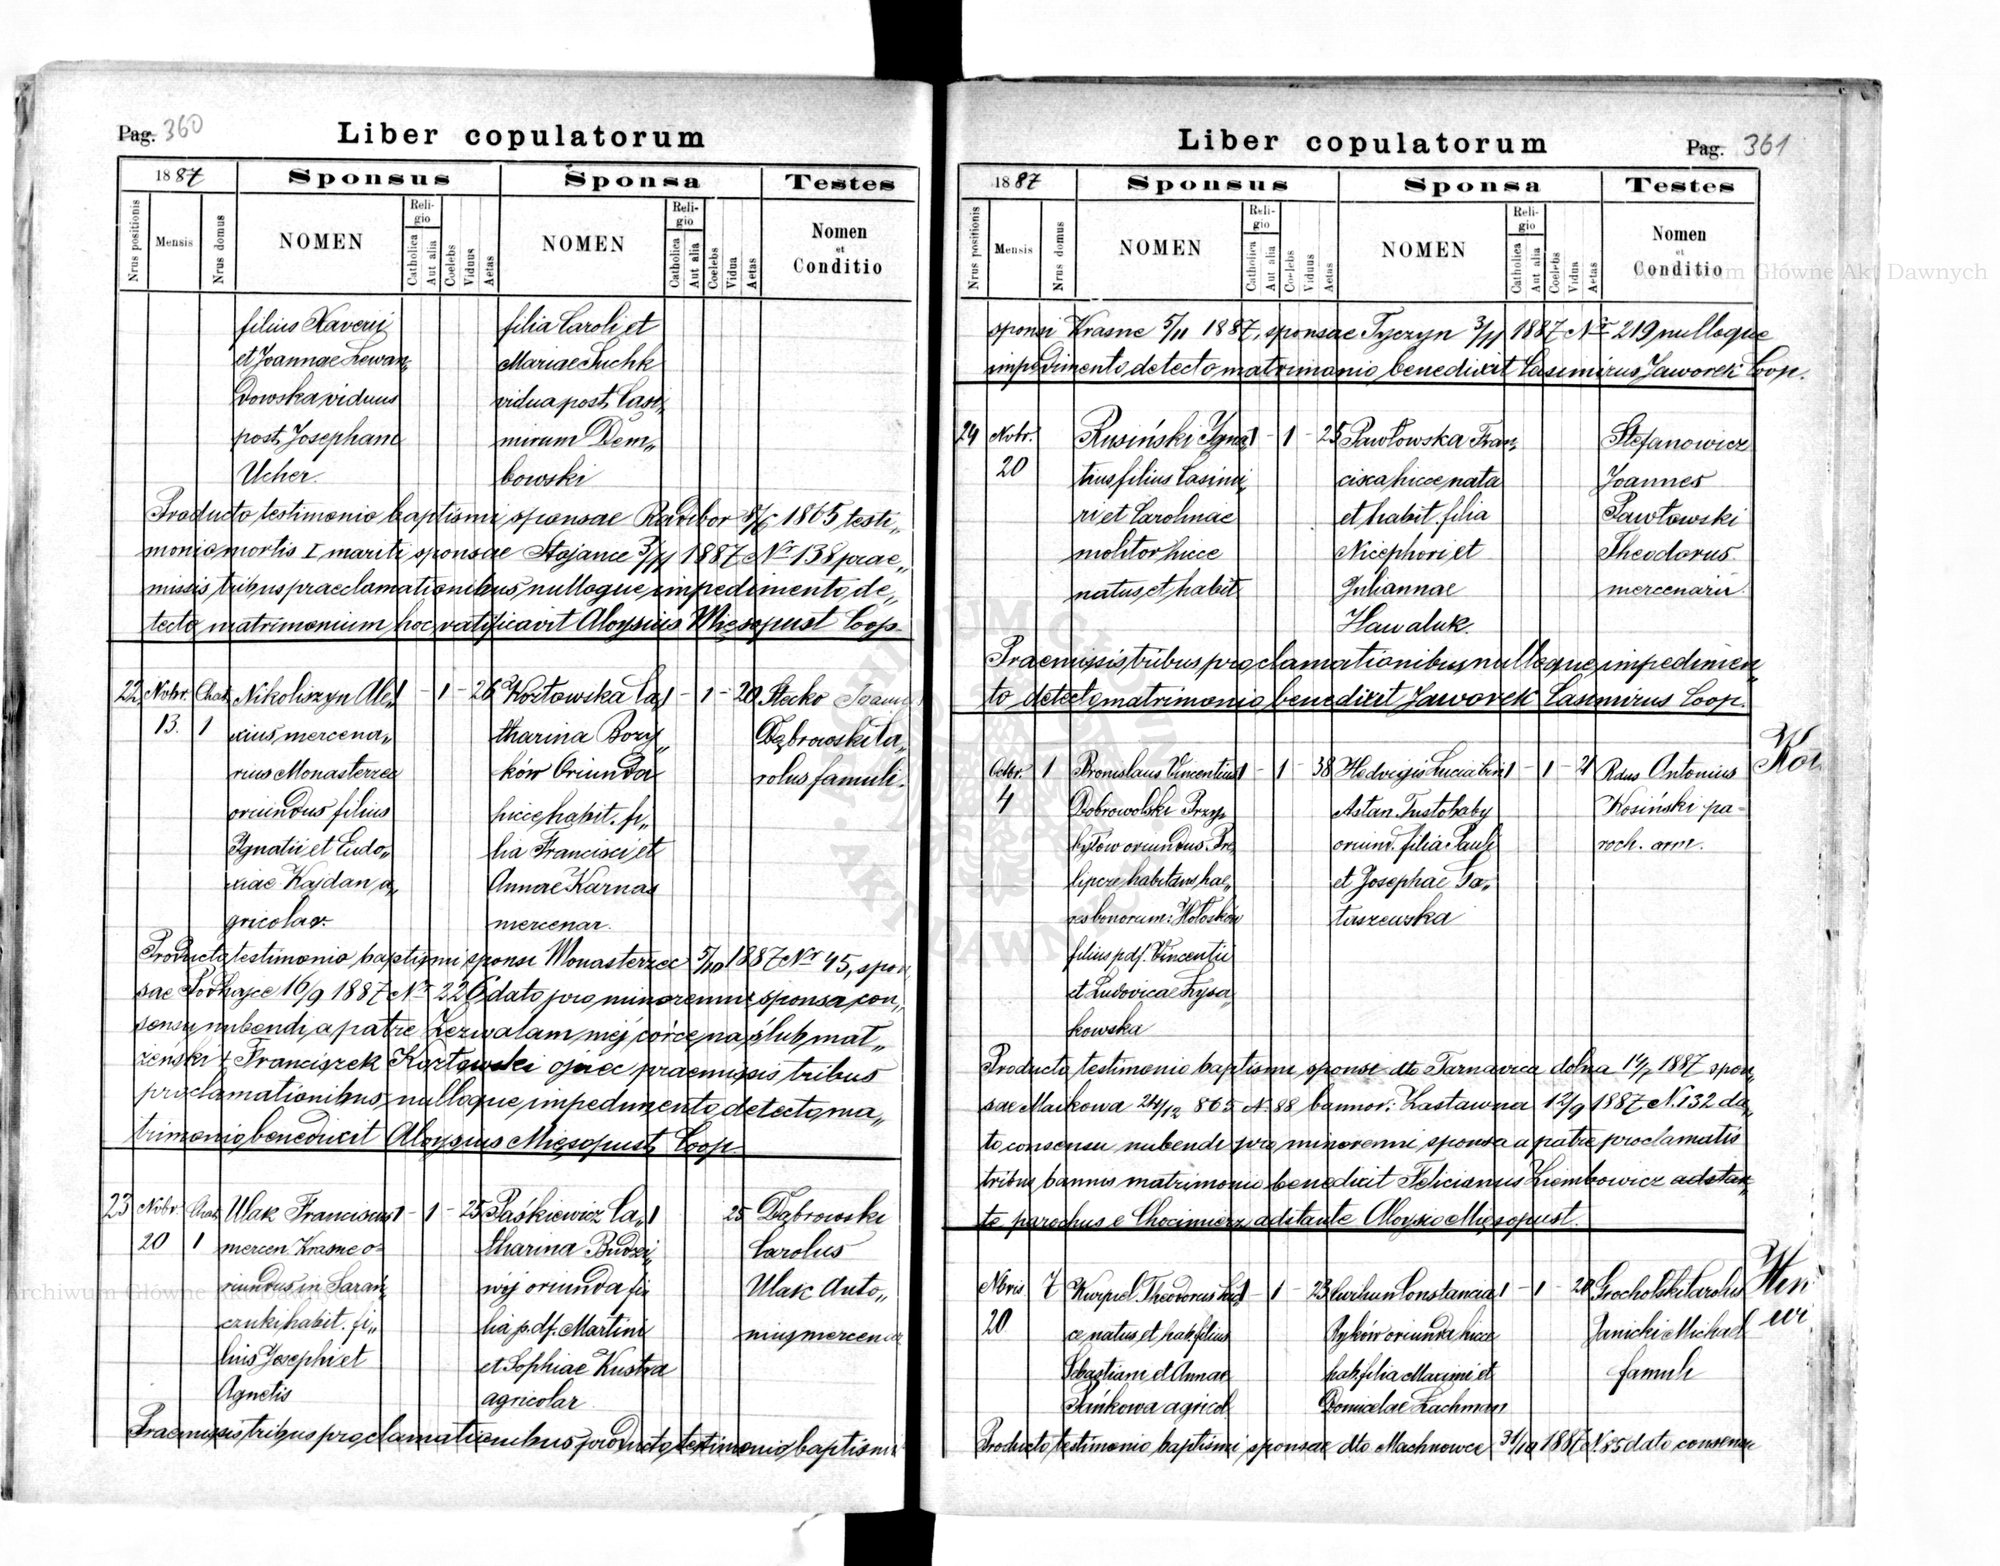 Pag. 360
Liber copulatorum
1887
Sponsus
Sponsa
Testes
Nrus positionis
Mensis
Nrus domus
NOMEN
Religio
Catholica
Aut alia
Coelebs
Viduus
Aetas
NOMEN
Religio
Catholica
Aut alia
Coelebs
Vidua
Aetas
Nomen
et
Conditio
filius Xaverii
et Joannae Lewan„
dowska viduus
post Josepham
Ucher.
filia Caroli et
Mariae Suchk
vidua post Casi„
mirum Dem„
bowski
Producto testimonio baptismi sponsae Radibor 1865 testi„
monio mortis I mariti sponsae Stojance 1887 Nr 138 prae„
missis tribus praeclamationibus nulloque impedimento de„
tecto matrimonium hoc ratificavit Aloysius Mięsopust Coop.
22
Novbr.
13.
Chat.
1
Nikoliszyn Ale„
xius mercena„
rius Monasterzec
oriundus filius
Ignatii et Eudo„
xiae Kajdan, a„
gricolar.
1 - 1 - 26
Kozłowska Ca„
tharina Bory„
ków Oriunda
hicce habit. fi„
lia Francisci et
Annae Karnas
mercenar.
1 - 1 - 20
Stecko Joann
Dąbrowski Ca„
rolus famuli.
Producto testimonio baptismi sponsi Monasterzec 5/10 1887 Nr 45, spon
sae Podhajce 16/9 1887 Nr 226 dato pro minorenni sponsa con„
sensu nubendi a patre Zezwalam mej córce na ślub mał„
żeński + Franciszek Kozłowski ojciec praemissis tribus
proclamationibus, nulloque impedimento detecto ma„
trimonio benedixit Aloysius Mięsopust Coop.
23
Novbr.
20
Chat.
1
Ulak Franciscus
mercen. Krasne o=
riundus in Sarań„
czuki habit. fi„
lius Josephi et
Agnetis
1 - 1 - 25
Paśkiewicz Ca„
tharina Budzi„
wój oriunda fi
lia p. df. Martini
et Sophiae Kustra
agricolar
1
25
Dąbrowski
Carolus
Ulak Anto„
nius mercenar
Praemissis tribus proclamationibus producto testimonio baptismi
Liber copulatorum
Pag. 361
1887
Sponsus
Sponsa
Testes
Nrus positionis
Mensis
Nrus domus
NOMEN
Religio
Catholica
Aut alia
Coelebs
Viduus
Aetas
NOMEN
Religio
Catholica
Aut alia
Coelebs
Vidua
Aetas
Nomen
et
Conditio
sponsi Krasne 5/11 1887, sponsae Tyczyn 3/11 1887 Nr 219 nulloque
impedimento detecto matrimonio benedixit Casimirus Jaworek Coop.
24
Novbr.
20
Rusiński Igna„
tius filius Casimi„
ri et Carolinae
molitor hicce
natus et habit
1 - 1 - 25
Pawłowska Fran„
cisca hicce nata
et habit. filia
Nicephori et
Juliannae
Hawaluk.
Stefanowicz
Joannes
Pawłowski
Theodorus
mercenarii.
Praemissis tribus proclamationibus, nulloque impedimen„
to detecto matrimonio benedixit Jaworek Casimirus Coop.
Octbr.
4
1
Bronislaus Vincentius
Dobrowolski Przy„
byłow oriundus Pre„
lipcze habitans hae„
res bonorum: Hołosków
filius p. df. Vincentii
et Ludovicae Łysa„
kowska
1 - 1 - 38
Hedvigis Lucia bin.
Astan Tustobaby
oriund. filia Pauli
et Josephae Ła„
taszewska
1 - 1 - 21
Rdus Antonius
Kosiński pa=
roch. arm.
Producto testimonio baptismi sponsi dto Tarnawica dolna 1887 spon„
sae Markowa 24/12 865 N. 88 bannor: Zastawna 12/9 1887 N. 132 da„
to consensu nubendi pro minorenni sponsa a patre proclamatis
tribus bannis matrimonio benedixit Felicianus Ziembowicz adstan„
te parochus e Chocimierz adstante Aloysio Mięsopust.
Nbris
20
7
Kurpiel Theodorus hic„
ce natus et hab. filius
Sebastiani et Annae
Pańkowa agricol.
1 - 1 - 23
Constancia
Ryków oriunda hicce
hab. filia Maximi et
Domicelae Lachman
1 - 1 - 20
Grocholski Carolus
Janicki Michael
famuli
Producto testimonio baptismi sponsae dto Machnowce 31/10 1887 N. 85 dato consensu